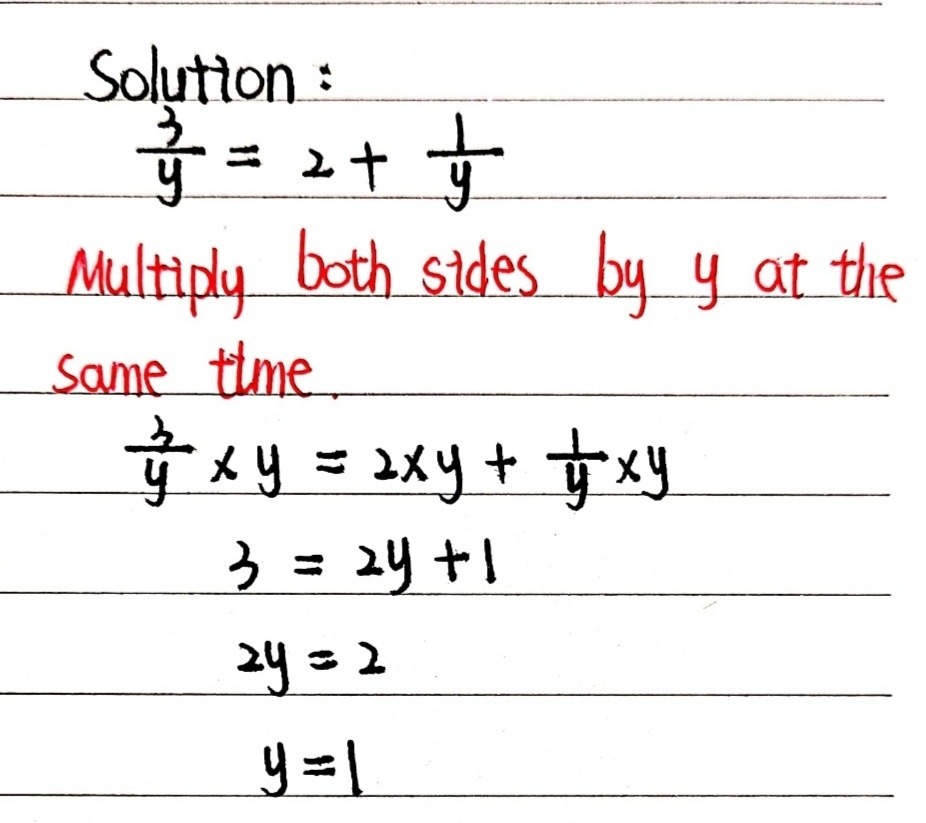 Solution :
3/y = 2 + 1/y
Multiply both sides by y at the
same time.
3/y × y = 2×y + 1/y ×y
3 = 2y +1
2y = 2
y = 1